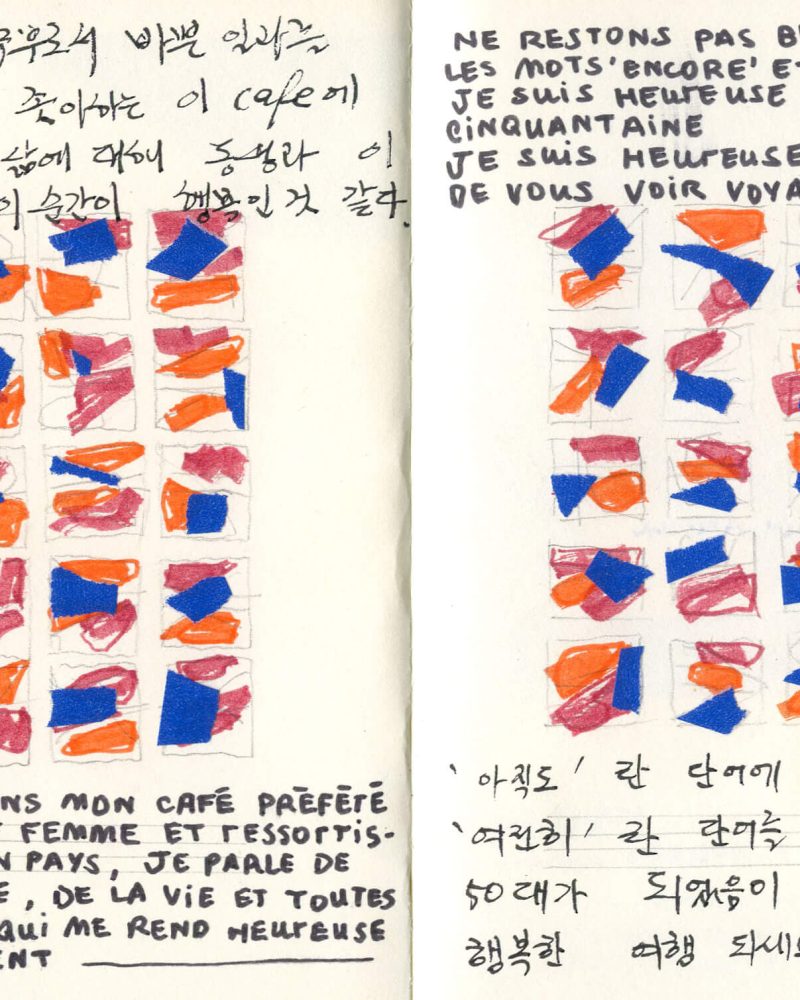 바쁜 일과를
좋아하는 이 cafe에
삶에 대해 동생과 이
이 순간이 행복인 것 같다.
NS MON CAFÉ PRÉFÉRÉ
FEMME ET RESSORTIS-
N PAYS, JE PARLE DE
E, DE LA VIE ET TOUTES
QUI ME REND HEUREUSE
ENT
NE RESTONS PAS B
LES MOTS 'ENCORE' E
JE SUIS HEUREUSE
CINQUANTAINE
JE SUIS HEUREUSE
DE VOUS VOIR VOYA
'아직도' 란 단어에
'여전히' 란 단어를
50대가 되었음이
행복한 여행 되세요